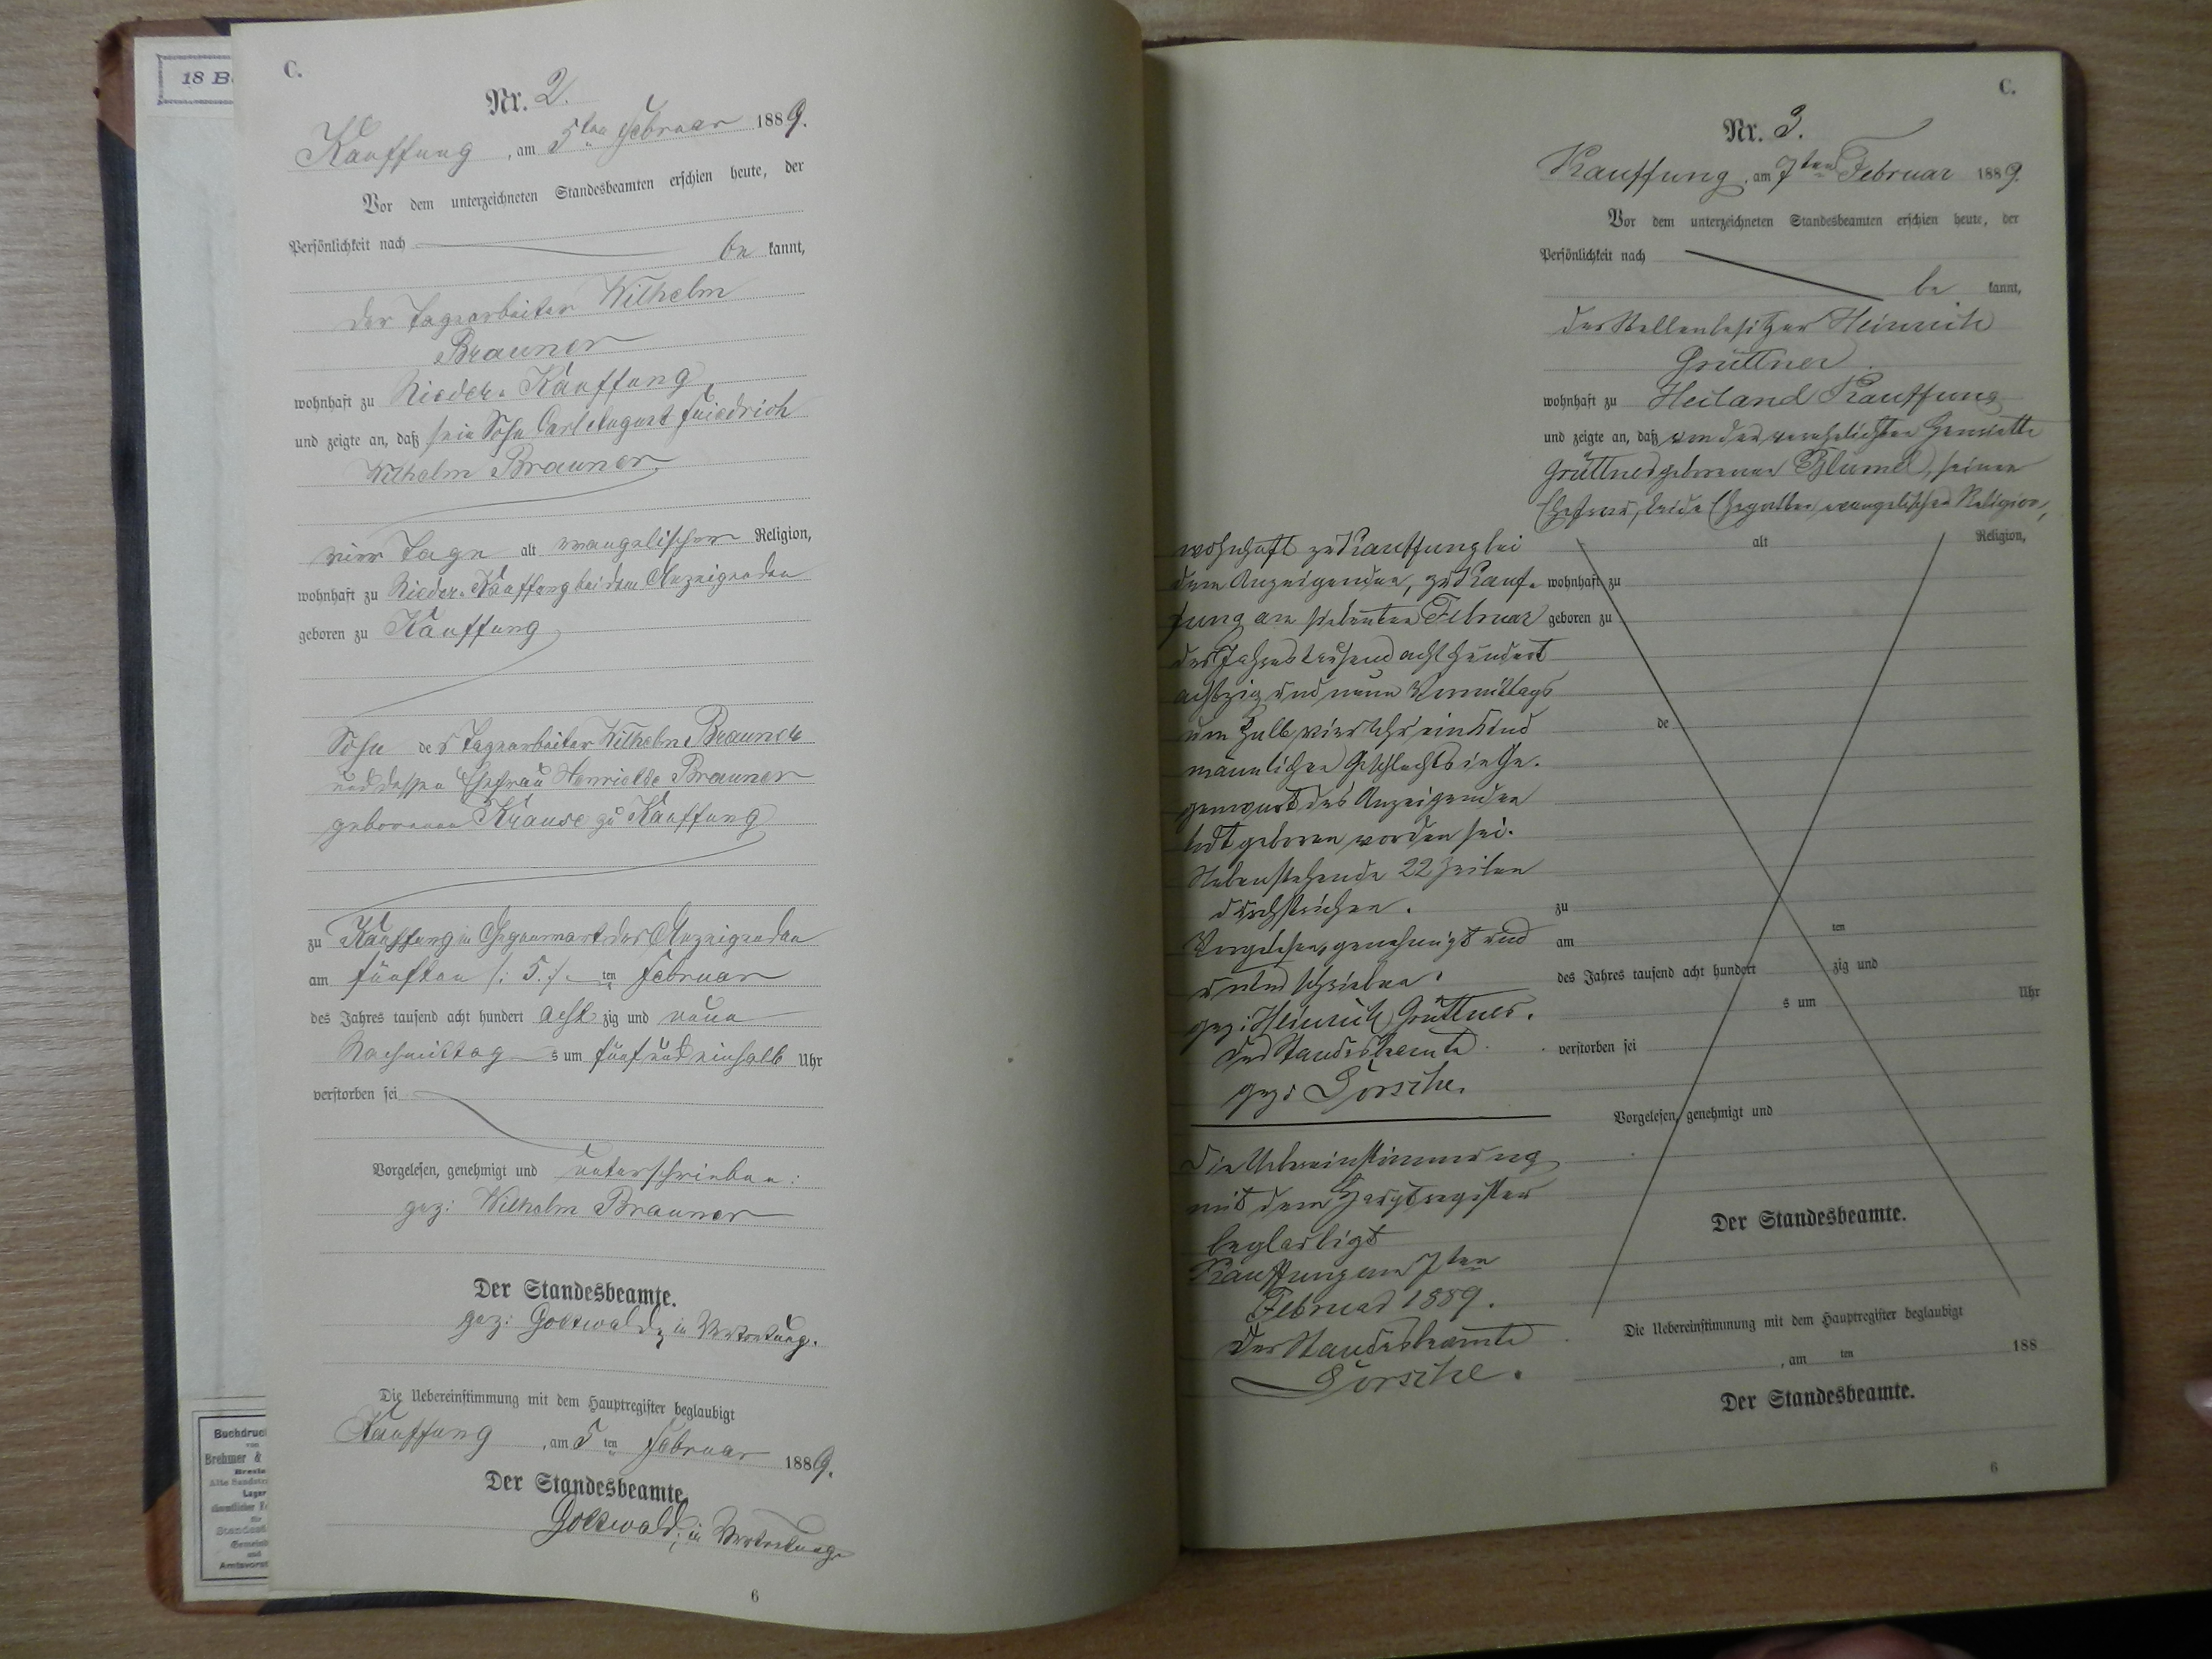 18 B
C.
Nr. 2.
Kauffung, am 5ten Februar 1889.
Vor dem unterzeichneten Standesbeamten erschien heute, der
Persönlichkeit nach
be kannt,
der Tagearbeiter Wilhelm
Brauner
wohnhaft zu Nieder-Kauffung
und zeigte an, daß sein Sohn Carl August Friedrich
Wilhelm Brauner,
vier Tage alt evangelischer Religion,
wohnhaft zu Nieder-Kauffung bei dem Anzeigenden
geboren zu Kauffung
Sohn des Tagearbeiter Wilhelm Brauner
und dessen Ehefrau Henriette Brauner
geborenen Krause zu Kauffung
zu Kauffung in Gegenwart des Anzeigenden
am fünften /: 5. :/ ten Februar
des Jahres tausend acht hundert acht zig und neun
Nachmittag s um fünf und einhalb Uhr
verstorben sei
Vorgelesen, genehmigt und unterschrieben:
gez: Wilhelm Brauner
Der Standesbeamte.
gez: Gottwald, in Vertretung.
Die Uebereinstimmung mit dem Hauptregister beglaubigt
Kauffung, am 5 ten Februar 1889.
Der Standesbeamte.
Gottwald, in Vertretung
6
Buchdruc
von
Brehmer &
Lager
für
Gemein
und
Amtsvorst
C.
Nr. 3.
Kauffung, am 7ten Februar 1889.
Vor dem unterzeichneten Standesbeamten erschien heute, der
Persönlichkeit nach
be kannt,
der Stellenbesitzer Heinrich
Grüttner
wohnhaft zu Heiland Kauffung
und zeigte an, daß von der verehelichten Henriette
Grüttner geborenen Blümel, seiner
Ehefrau, beide Ehegatten evangelischer Religion,
alt Religion,
wohnhaft zu Kauffung bei
dem Anzeigenden, zu Kauf-
fung am siebenten Februar
des Jahres tausend acht hundert
achtzig und neun Vormittags
um halb vier Uhr ein Kind
männlichen Geschlechts in Ge-
genwart des Anzeigenden
todt geboren worden sei.
Nebenstehende 22 Zeilen
durchstrichen.
Vorgelesen, genehmigt und
unterschrieben.
gez: Heinrich Grüttner.
Der Standesbeamte
gez: Dorsche.
Die Uebereinstimmung
mit dem Hauptregister
beglaubigt
Kauffung am 7ten
Februar 1889.
Der Standesbeamte
Dorsche.
wohnhaft zu
geboren zu
de
zu
am ten
des Jahres tausend acht hundert zig und
s um Uhr
verstorben sei
Vorgelesen, genehmigt und
Der Standesbeamte.
Die Uebereinstimmung mit dem Hauptregister beglaubigt
, am ten 188
Der Standesbeamte.
6